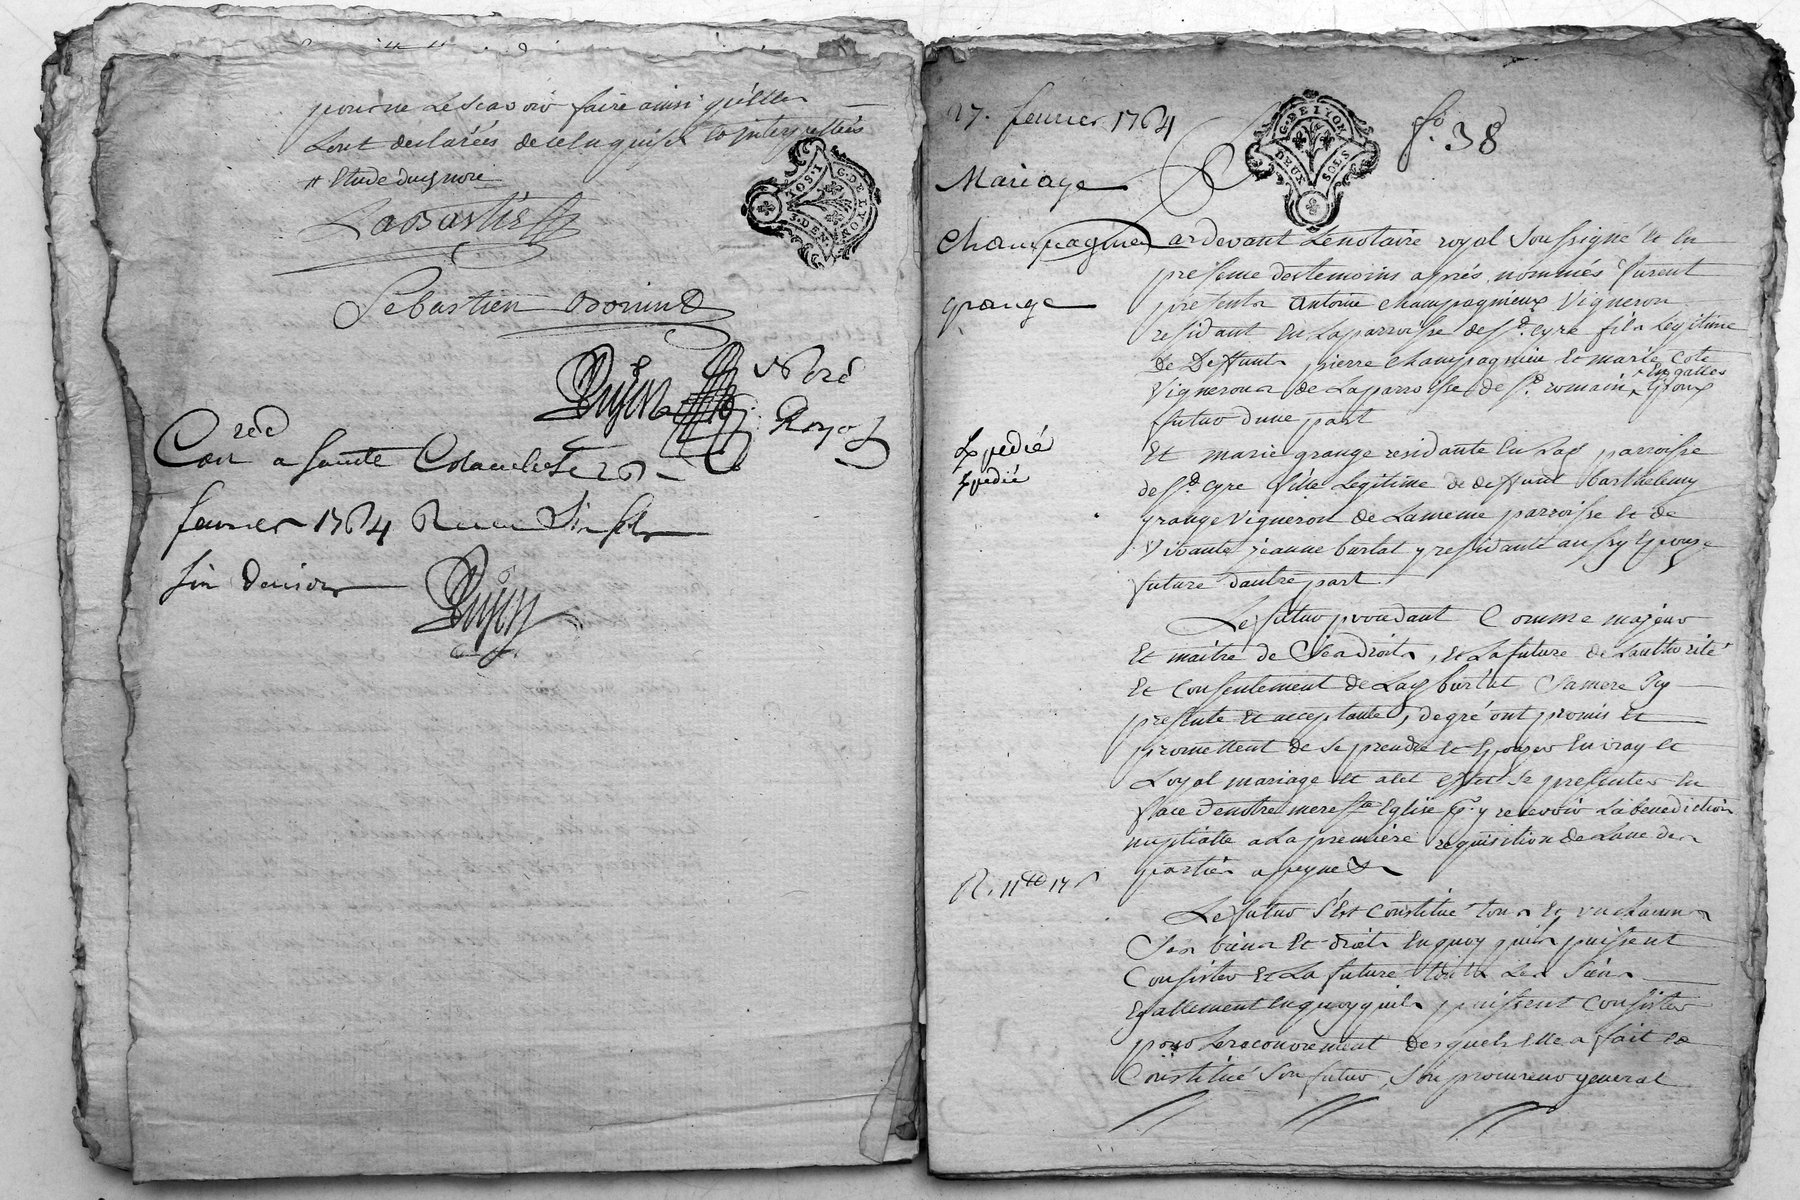 pour ne le scavoir faire ainsi qu'elles
l'ont declarées de ce enquises et interpellées
# Etude du gnore
Labastie
G. DE LYON
1. SOL
3. DEN.
Sebastien
Dujon
No.re
Royal
Con
a sainte Colombe le 26
fevrier 1764 Reçu six sols
six deniers
Dujon
27. fevrier 1764
G. DE LYON
DEUX SOLS
fo. 38
Mariage
Champagnieu
grange
ardevant Le notaire royal Soussigné et en
presence des temoins aprés nommés furent
presents antoine champagnieux Vigneron
residant en La parroisse de St. Cyre fils Legitime
De Deffunts pierre champagnieu et marie cote
Vignerons de La parroisse de St. romain en galles Epoux
futur d'une part
Expedié
Expedié
Et marie grange residante en Lad parroisse
de St. Cyre fille Legitime de deffunt barthelemy
grange Vigneron de La meme parroisse et de
Vivante jeanne burlat y residante aussy Epouze
future d'autre part
Le futur procedant Comme majeur
Et maitre de Ses droits, et La future de L'authorité
Et Consentement de Lad burlat Sa mere Icy
presente et acceptante, de gré ont promis et
promettent de Se prendre et Epouser En vray et
Loyal mariage et a cet effet Se presenter en
face de notre mere Ste Eglise pr. y recevoir La benediction
nuptialle a La premiere requisition de L'une des
parties a peyne &
R. 11tt 17 s
Le futur S'est Constitué tous Et un chacuns
Ses biens Et droits En quoy qu'ils puissent
Consister Et La future touts Les Siens
Egallement en quoy qu'ils puissent Consister
pour Le recouvrement desquels Elle a fait et
Constitué Son futur, Son procureur general